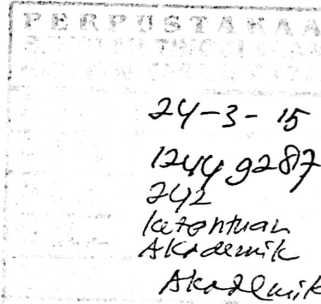 PERPUSTAKAA
24-3-15
12449287
242
Ketentuan
Akademik
Akademik